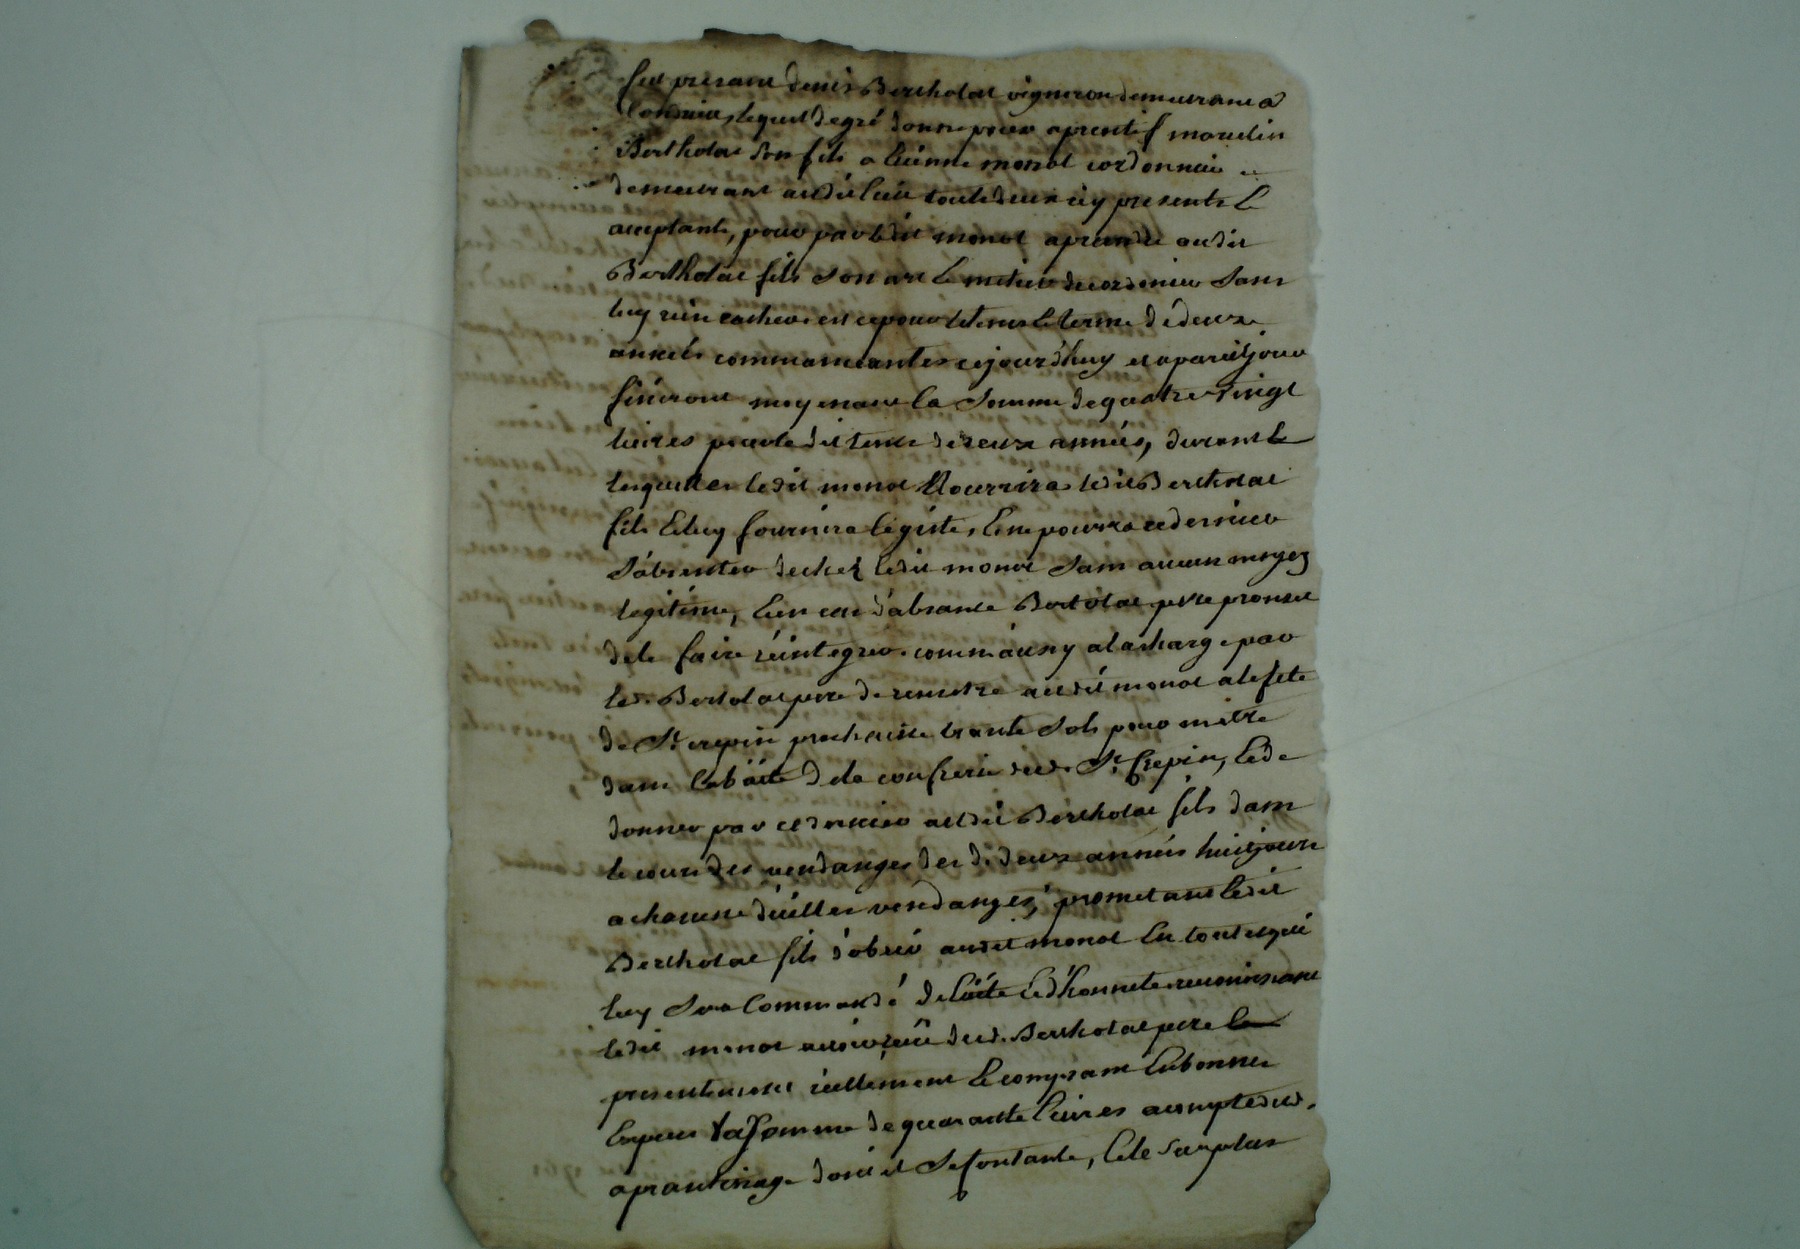 fut présant denis Bertholat vigneron demeurant a
lequel de gré donne pour aprentif
Bertholat son fils a Etienne monot cordonnier
demeurant audit lieu tous deux icy presents &
acceptants, pour par ledit monot aprendre audit
Bertholat fils son art & metier de cordonier sans
luy rien cacher et ce pour le terme de deux
années commancantes cejourd'huy et a pareil jour
finiront moyenant la somme de quatre vingt
livres pour le dit tems de deux années, durant
lesquelles ledit monot Nourrira ledit Bertholat
fils & luy fournira le giste, & ne pourra ce dernier
s'absenter de chez ledit monot sans aucun moyen
legitime, & en cas d'absance Bertolat pere promet
de le faire réintegrer comm'aussy a la charge par
led. Bertolat pere de remettre audit monot a la fete
de St crepin prochaine trante sols pour mettre
dans la boite de la confrerie dud. St Crepin, & de
donner par ce dernier audit Bertholat fils dans
le cours des vendanges des d. deux années huit jours
a chacune d'icelles vendanges, prometant ledit
Bertholat fils d'obeir audit monot en tout ce qui
luy sera Commandé de licite & d'honnete reconoissant
ledit monot avoir reçû dud. Bertholat pere
presentement réellement & comptant en bonnes
Especes la somme de quarante livres a compte dud.
aprantisage dont il se contante, & le surplus